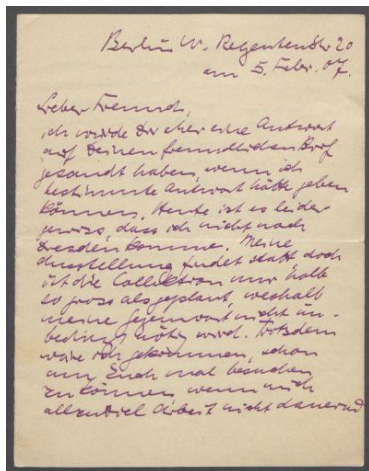 Berlin W. Regentenstr 20
am 5. Febr. 07.
Lieber Freund,
ich würde Dir eher eine Antwort
auf Deinen freundlichen Brief
gesandt haben, wenn ich
bestimmte Antwort hätte geben
können. Heute ist es leider
gewiss, dass ich nicht nach
Dresden komme. Meine
Ausstellung findet statt doch
ist die Collektion nur halb
so gross als geplant, weshalb
meine Gegenwart nicht un-
bedingt nötig wird. Trotzdem
wäre ich gekommen, schon
um Euch mal besuchen
zu können wenn mich
allzuviel Arbeit nicht dauernd